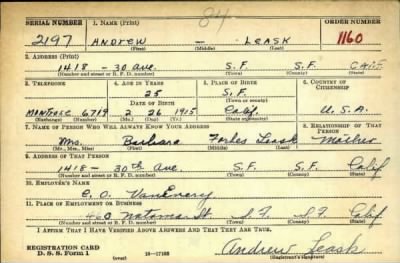 SERIAL NUMBER 1. NAME (Print) ORDER NUMBER
2197 ANDREW — LEASK 1160
(First) (Middle) (Last)
2. ADDRESS (Print)
1418 - 30 AVE. S.F. S.F. CALIF.
(Number and street or R. F. D. number) (Town) (County) (State)
3. TELEPHONE 4. AGE IN YEARS 5. PLACE OF BIRTH 6. COUNTRY OF CITIZENSHIP
25 S.F.
DATE OF BIRTH (Town or county)
MONTROSE 6719 2 26 1915 Calif. U.S.A.
(Exchange) (Number) (Mo.) (Day) (Yr.) (State or country)
7. NAME OF PERSON WHO WILL ALWAYS KNOW YOUR ADDRESS 8. RELATIONSHIP OF THAT PERSON
Mrs. Barbara Forbes Leask Mother
(Mr., Mrs., Miss) (First) (Middle) (Last)
9. ADDRESS OF THAT PERSON
1418 - 30th Ave. S.F. S.F. Calif
(Number and street or R. F. D. number) (Town) (County) (State)
10. EMPLOYER'S NAME
11. PLACE OF EMPLOYMENT OR BUSINESS
460 Natoma St. S.F. S.F. Calif
(Number and street or R. F. D. number) (Town) (County) (State)
I AFFIRM THAT I HAVE VERIFIED ABOVE ANSWERS AND THAT THEY ARE TRUE.
REGISTRATION CARD
D. S. S. Form 1 16—17105 Andrew Leask
(Registrant's signature)